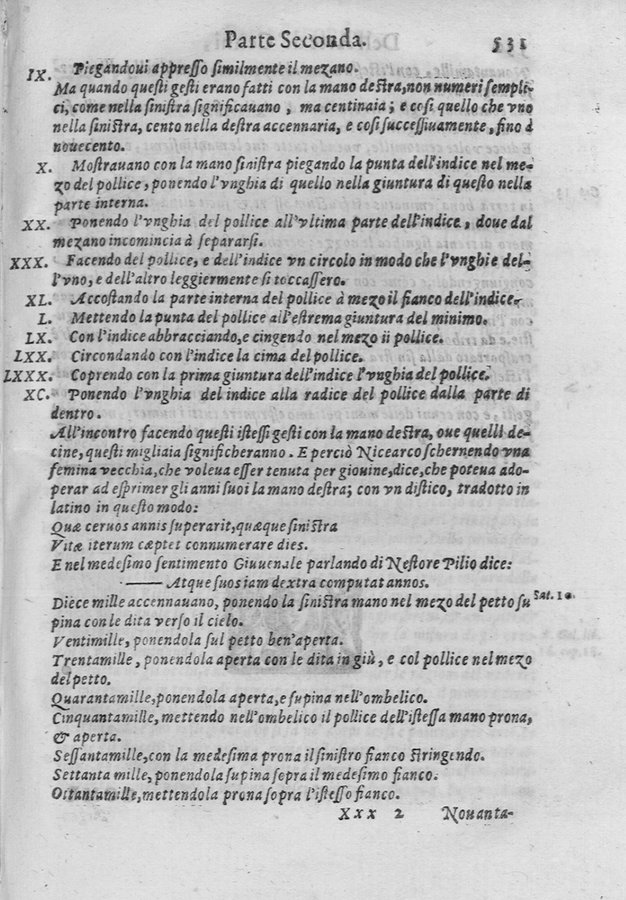 Parte Seconda. 531
IX. Piegandoui appresso similmente il mezano.
Ma quando questi gesti erano fatti con la mano destra, non numeri sempli-
ci, come nella sinistra significauano, ma centinaia; e cosi quello che vno
nella sinistra, cento nella destra accennaria, e cosi successiuamente, fino à
nouecento.
X. Mostrauano con la mano sinistra piegando la punta dell'indice nel me-
zo del pollice, ponendo l'vnghia di quello nella giuntura di questo nella
parte interna.
XX. Ponendo l'vnghia del pollice all'vltima parte dell'indice, doue dal
mezano incomincia à separarsi.
XXX. Facendo del pollice, e dell'indice vn circolo in modo che l'vnghie del-
l'vno, e dell'altro leggiermente si toccassero.
XL. Accostando la parte interna del pollice à mezo il fianco dell'indice.
L. Mettendo la punta del pollice all'estrema giuntura del minimo.
LX. Con l'indice abbracciando, e cingendo nel mezo il pollice.
LXX. Circondando con l'indice la cima del pollice.
LXXX. Coprendo con la prima giuntura dell'indice l'vnghia del pollice.
XC. Ponendo l'vnghia del indice alla radice del pollice dalla parte di
dentro.
All'incontro facendo questi istessi gesti con la mano destra, oue quelli de-
cine, questi migliaia significheranno. E perciò Nicearco schernendo vna
femina vecchia, che voleua esser tenuta per giouine, dice, che poteua ado-
perar ad esprimer gli anni suoi la mano destra; con vn distico, tradotto in
latino in questo modo:
Quæ ceruos annis superarit, quæque sinistra
Vitæ iterum cæptet connumerare dies.
E nel medesimo sentimento Giuuenale parlando di Nestore Pilio dice:
—— Atque suos iam dextra computat annos.
Diece mille accennauano, ponendo la sinistra mano nel mezo del petto su Sat. 10.
pina con le dita verso il cielo.
Ventimille, ponendola sul petto ben'aperta.
Trentamille, ponendola aperta con le dita in giù, e col pollice nel mezo
del petto.
Quarantamille, ponendola aperta, e supina nell'ombelico.
Cinquantamille, mettendo nell'ombelico il pollice dell'istessa mano prona,
& aperta.
Sessantamille, con la medesima prona il sinistro fianco stringendo.
Settanta mille, ponendola supina sopra il medesimo fianco.
Ottantamille, mettendola prona sopra l'istesso fianco.
Xxx 2 Nouanta-